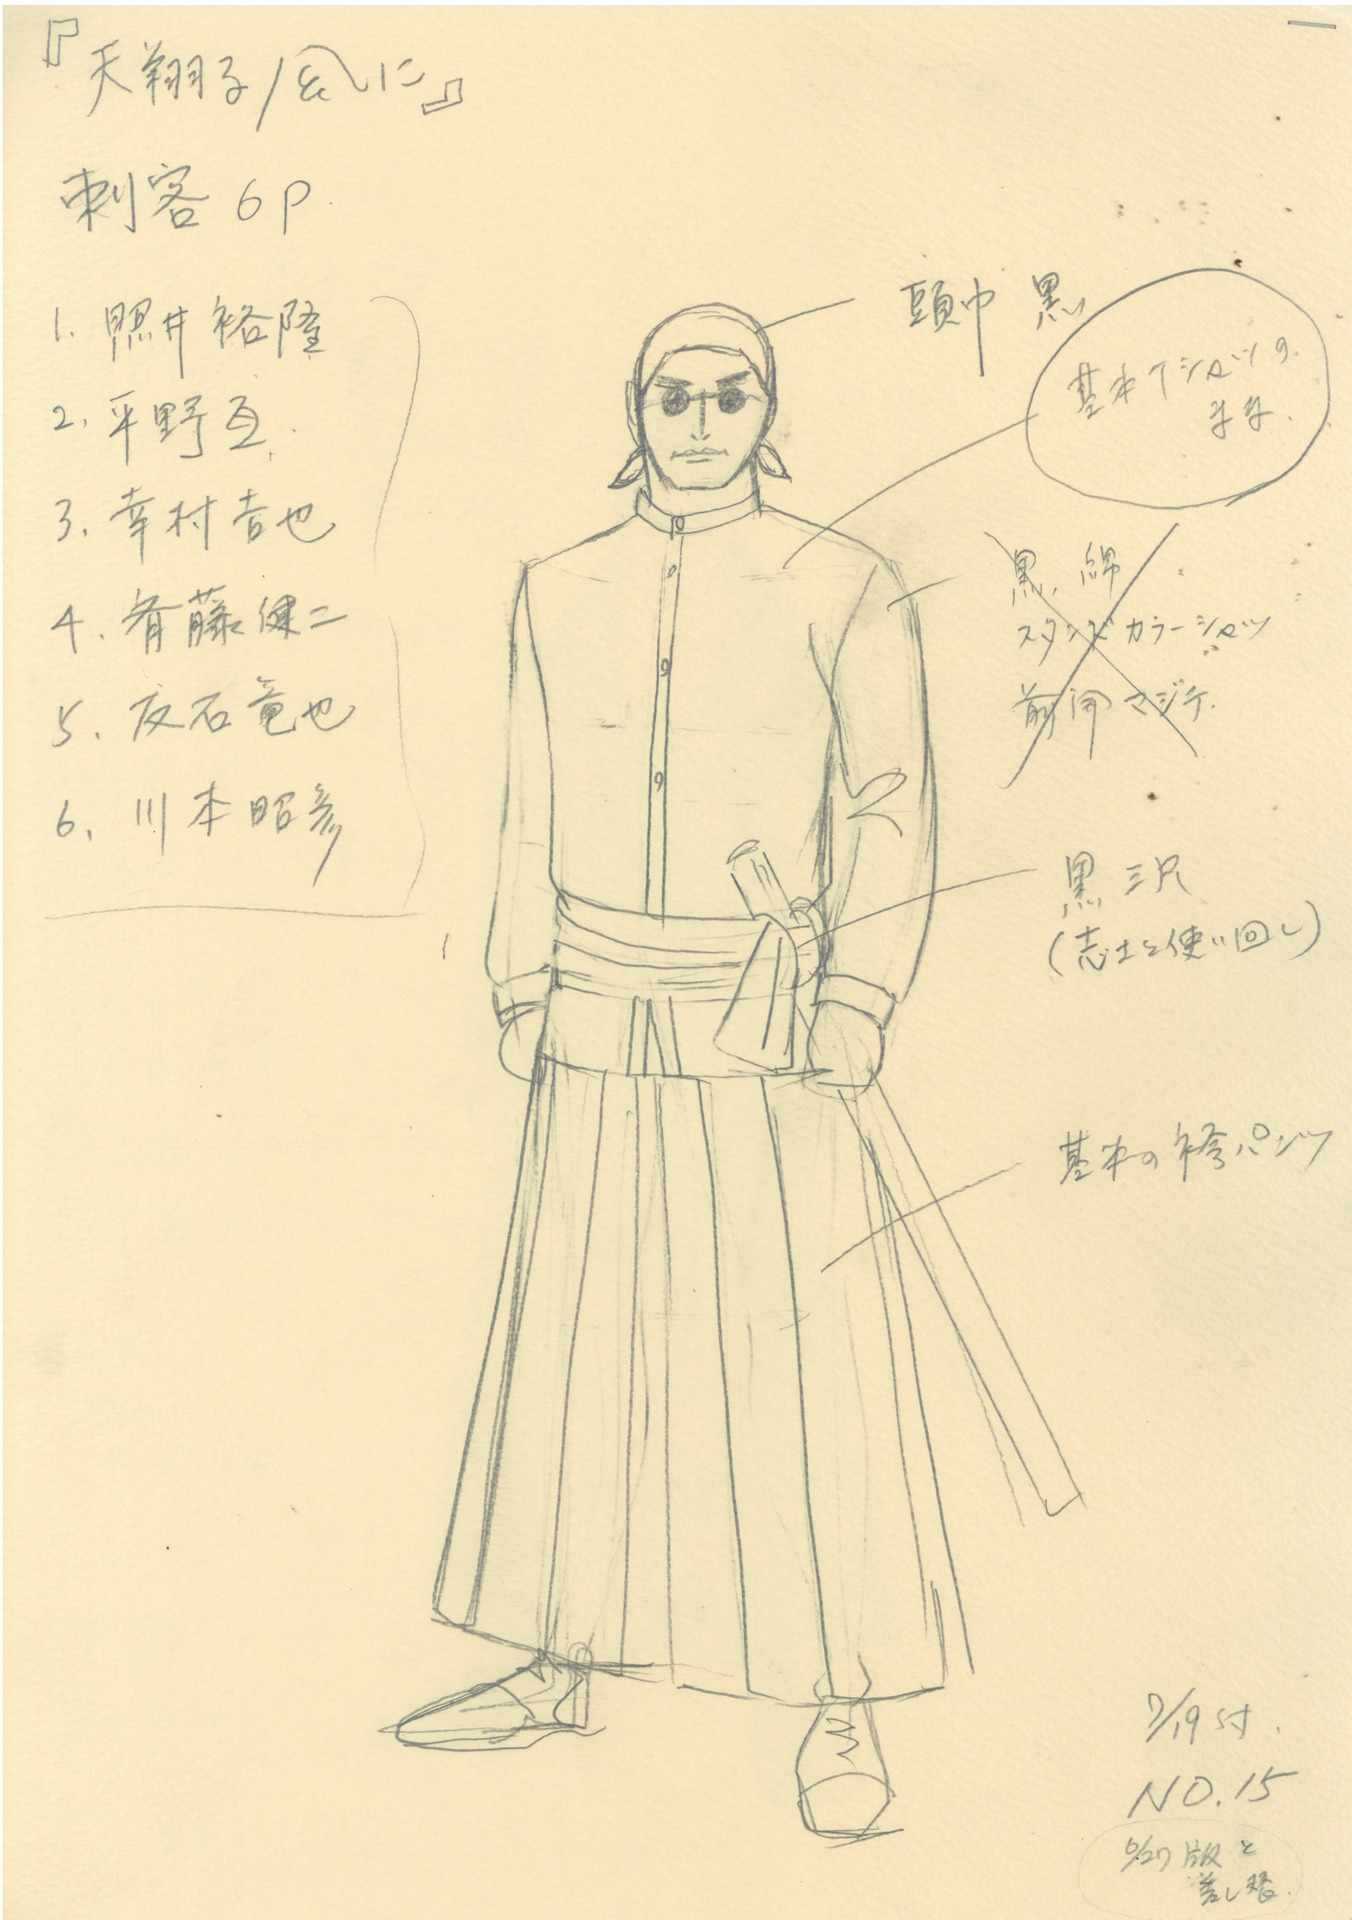 『天翔る風に』
刺客 6P
1. 照井裕隆
2. 平野亙
3. 幸村吉也
4. 斉藤健二
5. 友石竜也
6. 川本昭彦
頭巾 黒
基本Tシャツの
まま.
黒、綿
スタンドカラーシャツ
前開マジテ.
黒 三尺
(志士と使い回し)
基本の袴パンツ
7/19 付.
NO.15
6/27 版と
差し替.